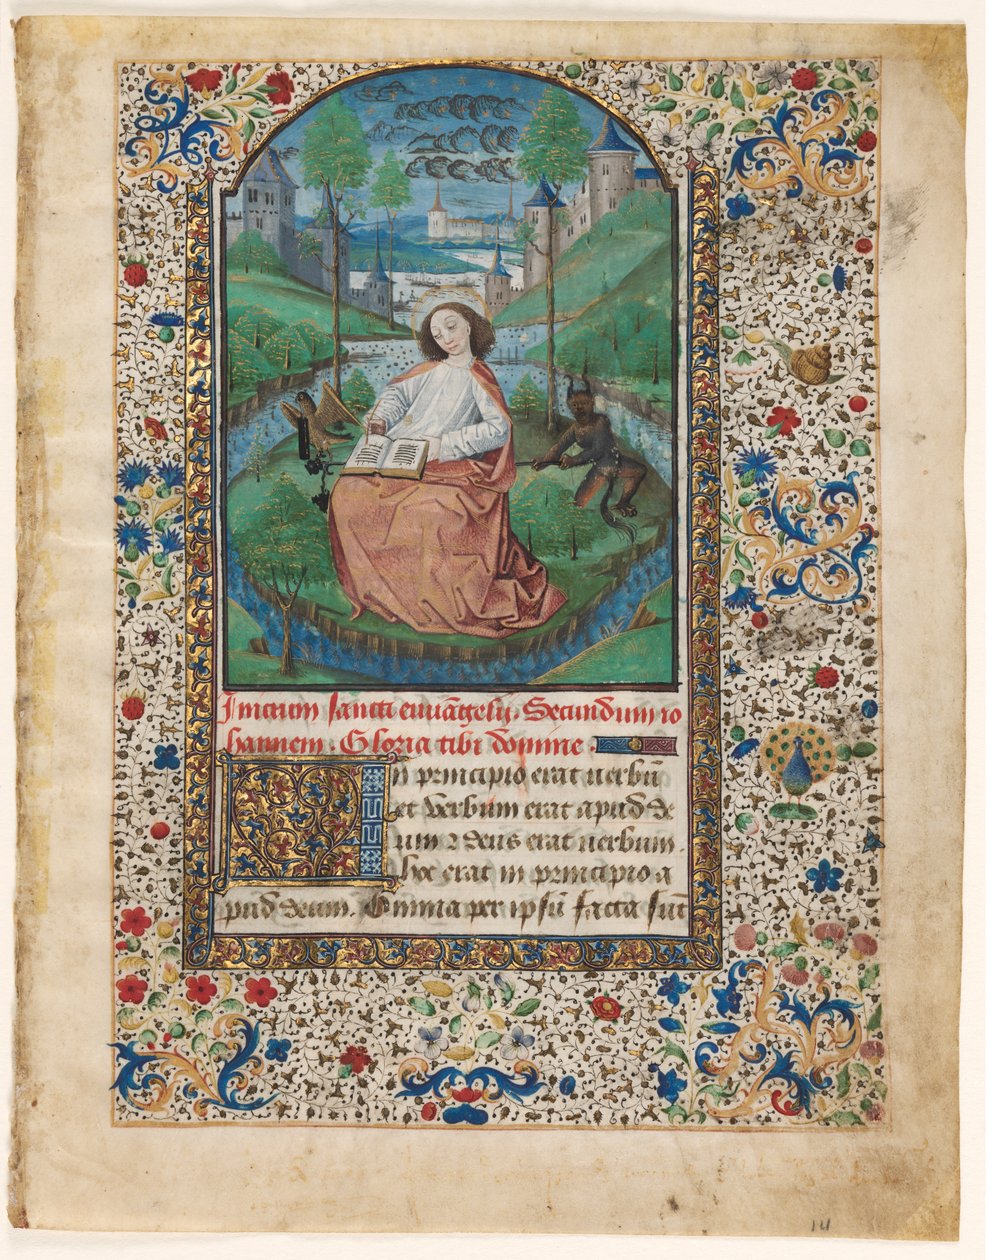 Inicium sancti euvāgelij. Secundum io
hannem. Gloria tibi dōmine.
In principio erat uerbū
et Verbum erat apud de
um ⁊ deus erat uerbum.
hoc erat in principio a
pud deum. Omnia per ipsū facta sūt
14